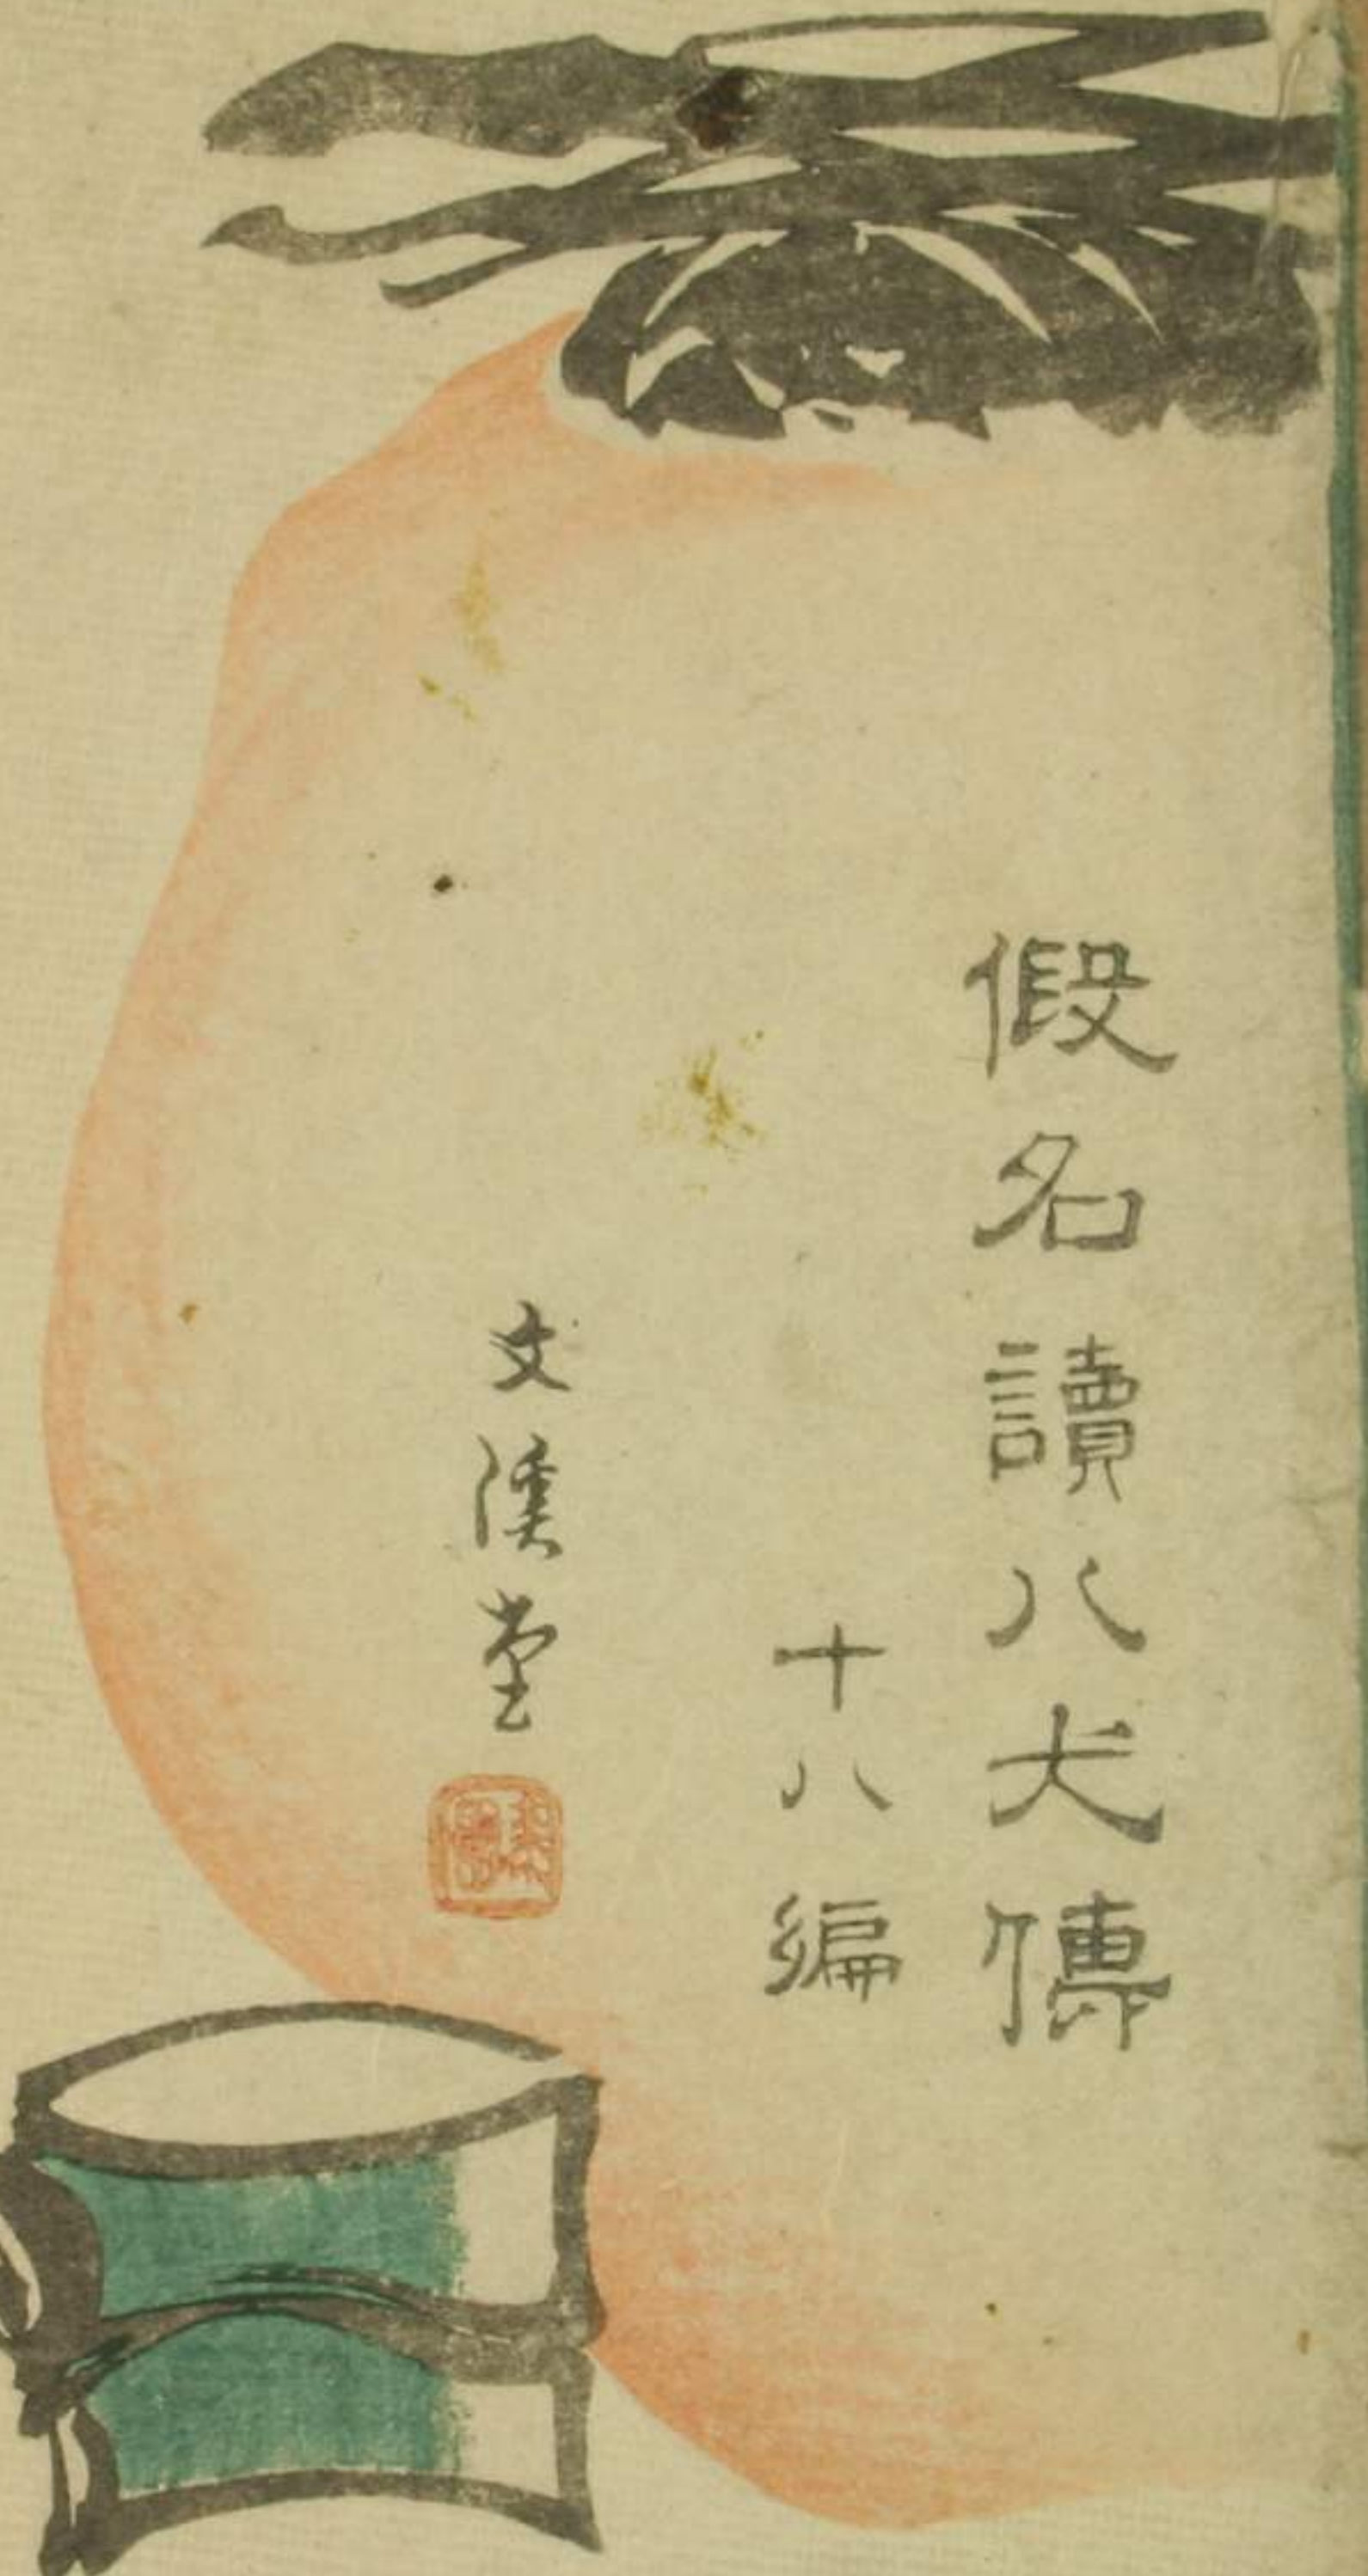 假名讀八犬傳
十八編
文溪堂